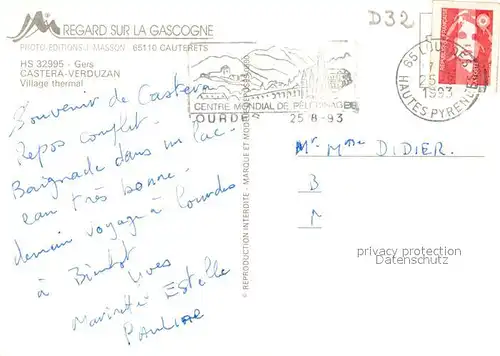 D32
REGARD SUR LA GASCOGNE
PHOTO-EDITIONS J. MASSON 65110 CAUTERETS
HS 32995 - Gers
CASTERA-VERDUZAN
Village thermal
CENTRE MONDIAL DE PELERINAGES
LOURDES 25-8-93
65 LOURDES
25
1993
HAUTES PYRENEES
Souvenir de Castera
Repos complet.
Baignade dans un lac.
eau très bonne.
demain voyage à Lourdes
à Bientôt
Yves
Estelle
Pauline
© REPRODUCTION INTERDITE - MARQUE ET MODELE DEPOSES
Mr Mme DIDIER.
B
privacy protection
Datenschutz